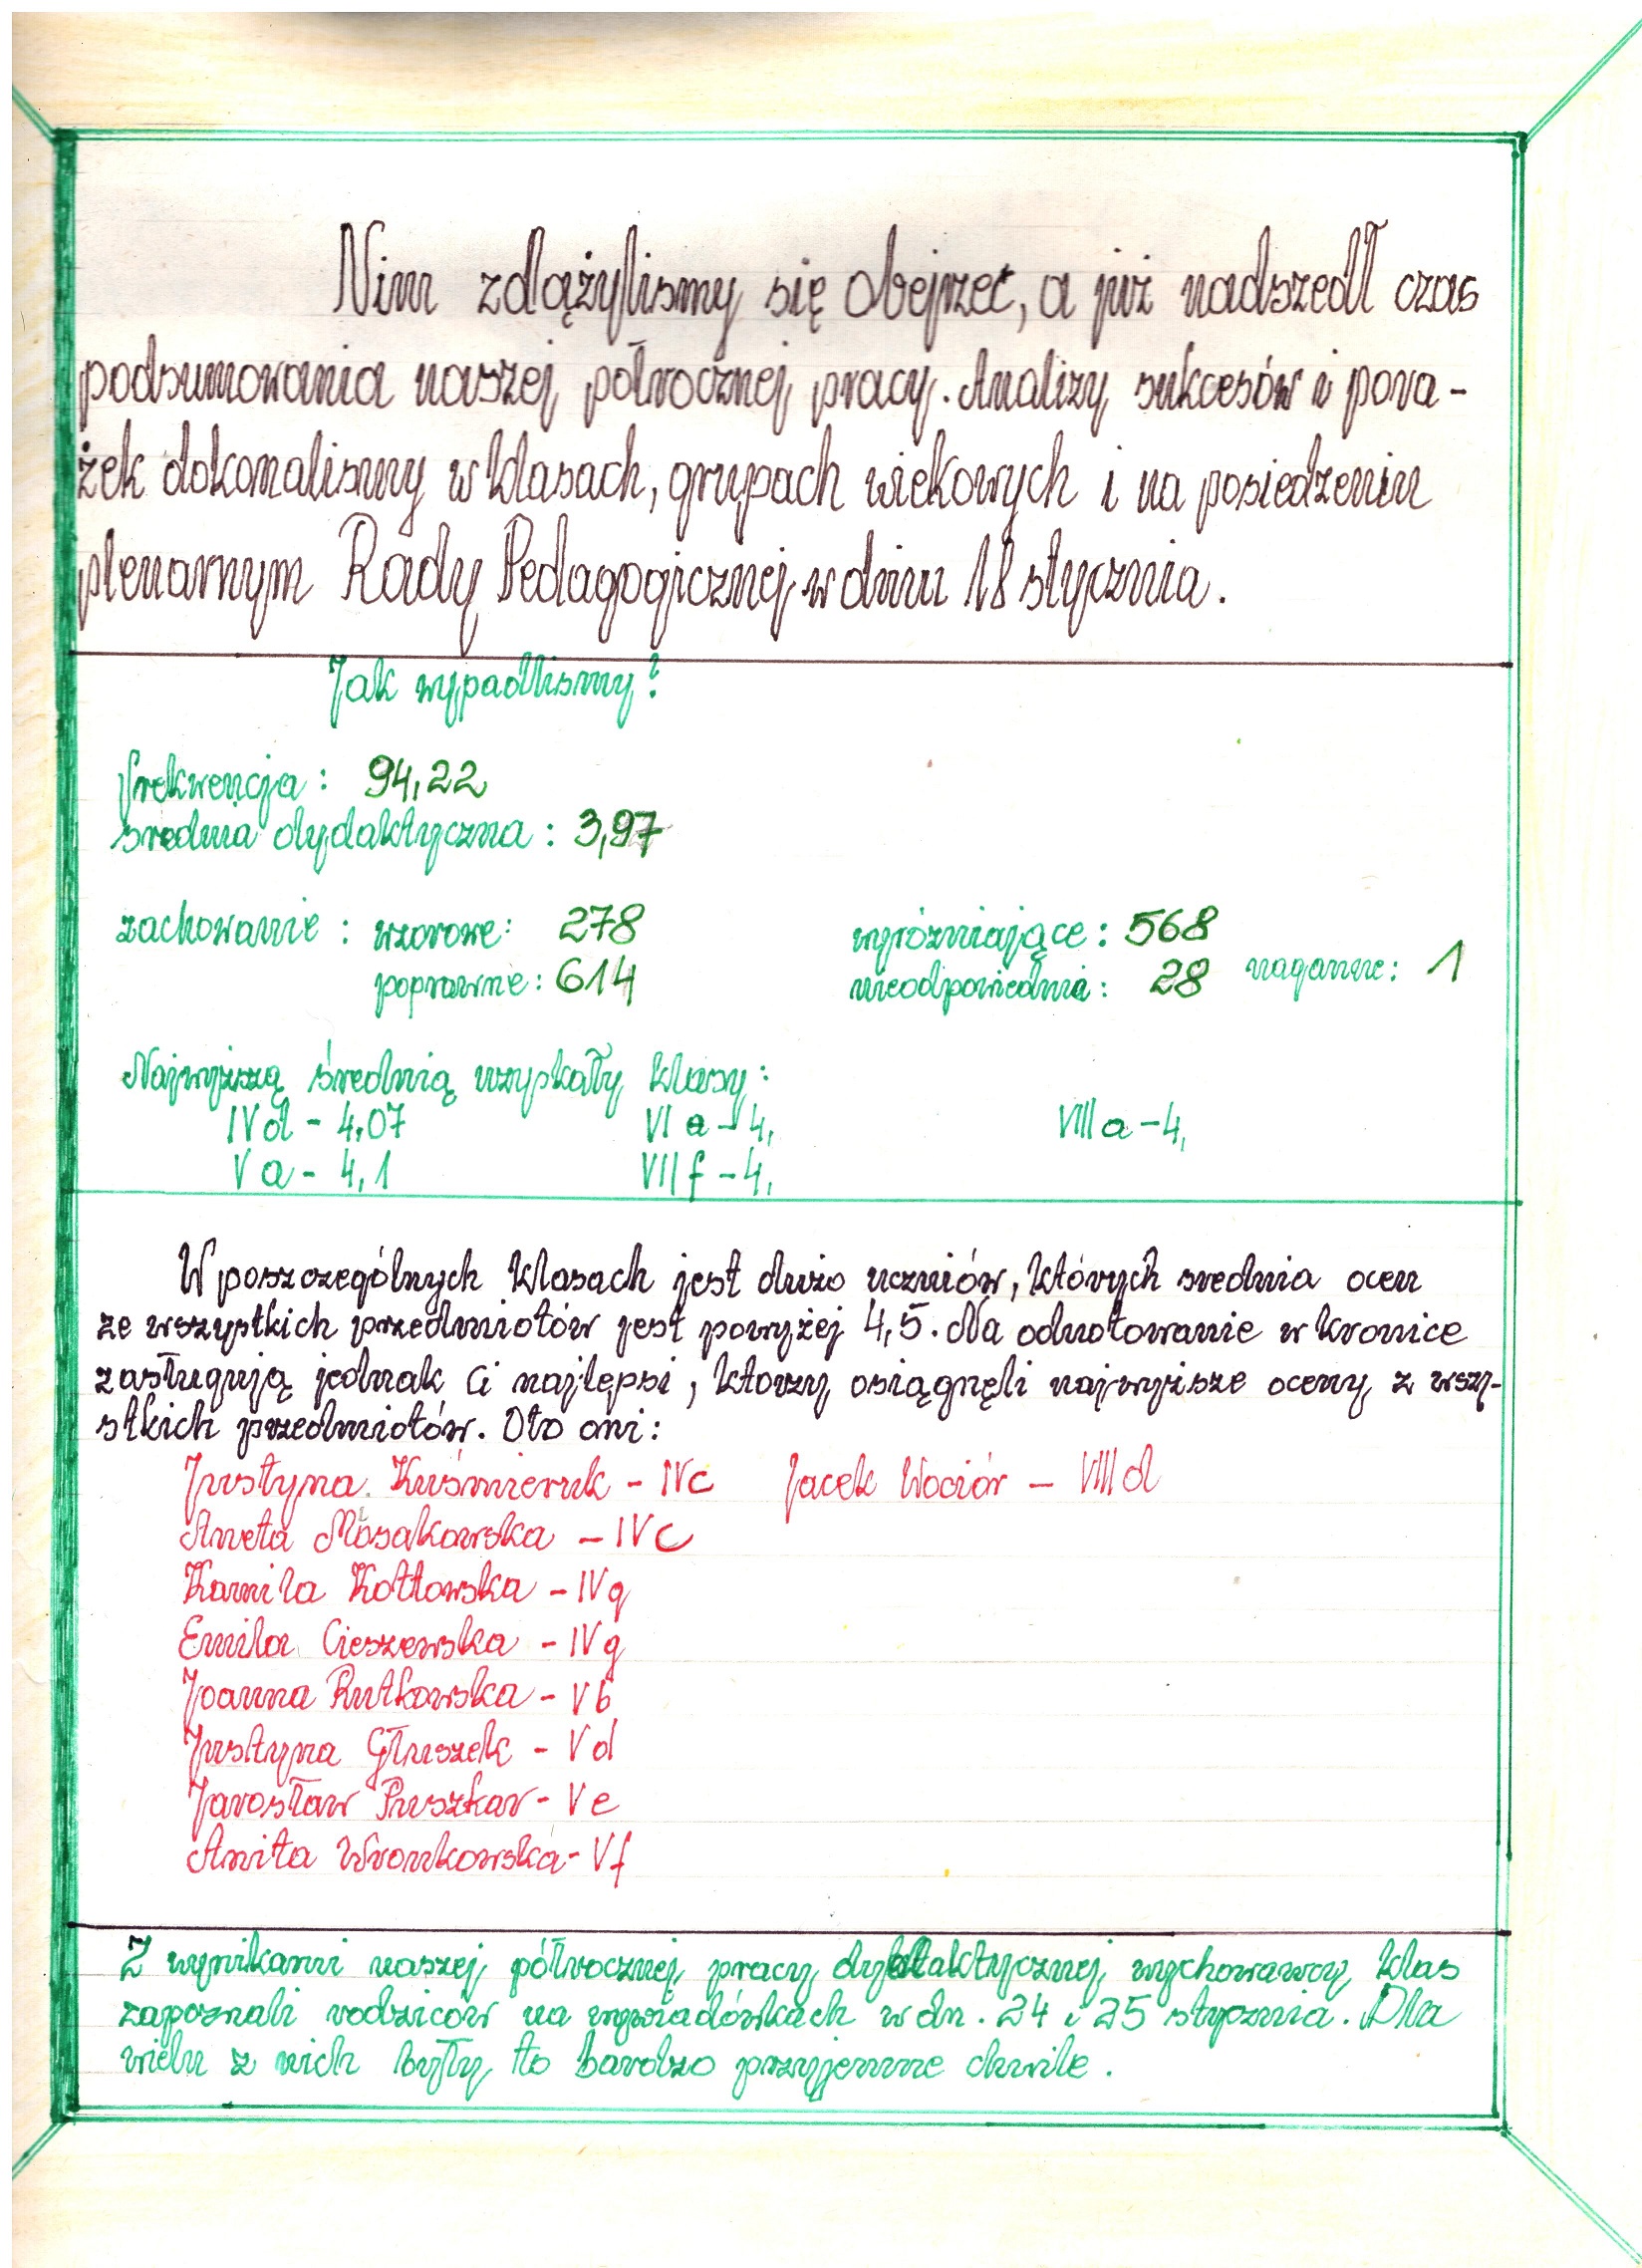 Nim zdążyliśmy się obejrzeć, a już nadszedł czas
podsumowania naszej półrocznej pracy. Analizy sukcesów i pora-
żek dokonaliśmy w klasach, grupach wiekowych i na posiedzeniu
plenarnym Rady Pedagogicznej w dniu 18 stycznia.
Jak wypadliśmy?
frekwencja: 94,22
średnia dydaktyczna: 3,97
zachowanie: wzorowe: 278 wyróżniające: 568
poprawne: 614 nieodpowiednie: 28 naganne: 1
Najwyższą średnią uzyskały klasy:
IV d - 4,07 VI a - 4, VIII a - 4,
V a - 4,1 VII f - 4,
W poszczególnych klasach jest dużo uczniów, których średnia ocen
ze wszystkich przedmiotów jest powyżej 4,5. Na odnotowanie w kronice
zasługują jednak ci najlepsi, którzy osiągnęli najwyższe oceny z wszy-
stkich przedmiotów. Oto oni:
Justyna Kuśmieruk - IVc Jacek Wociór - VIII d
Aneta Mosakowska - IVc
Kamila Kotłowska - IVg
Emila Cieszewska - IVg
Joanna Rutkowska - Vb
Justyna Głuszek - Vd
Jarosław Puszkar - Ve
Anita Wronkowska - Vf
Z wynikami naszej półrocznej pracy dydaktycznej wychowawcy klas
zapoznali rodziców na wywiadówkach w dn. 24 i 25 stycznia. Dla
wielu z nich były to bardzo przyjemne chwile.